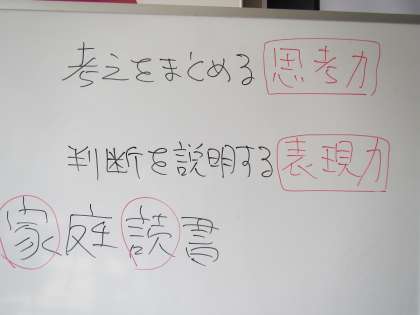 考えをまとめる 思考力
判断を説明する 表現力
家庭読書